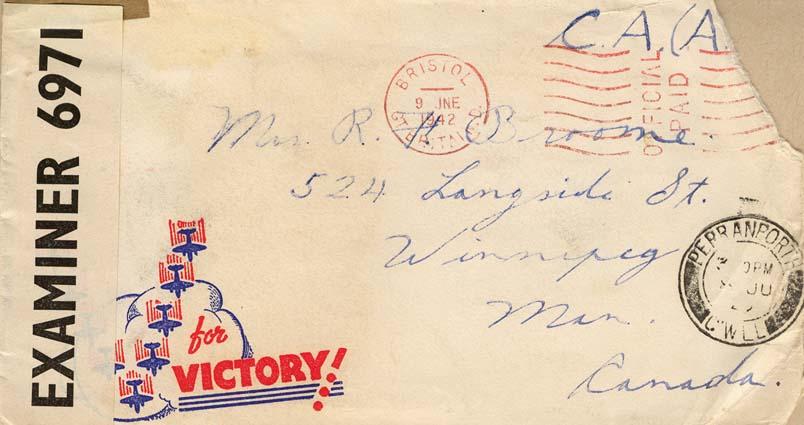 EXAMINER 6971
C.A.(A.
BRISTOL
9 JNE
1942
GT BRITAIN
OFFICIAL
PAID
Mrs. R. H Broome.
524 Langside St.
Winnipeg
Man.
Canada.
PERRANPORTH
PM
JU
C'WLL
for
VICTORY!